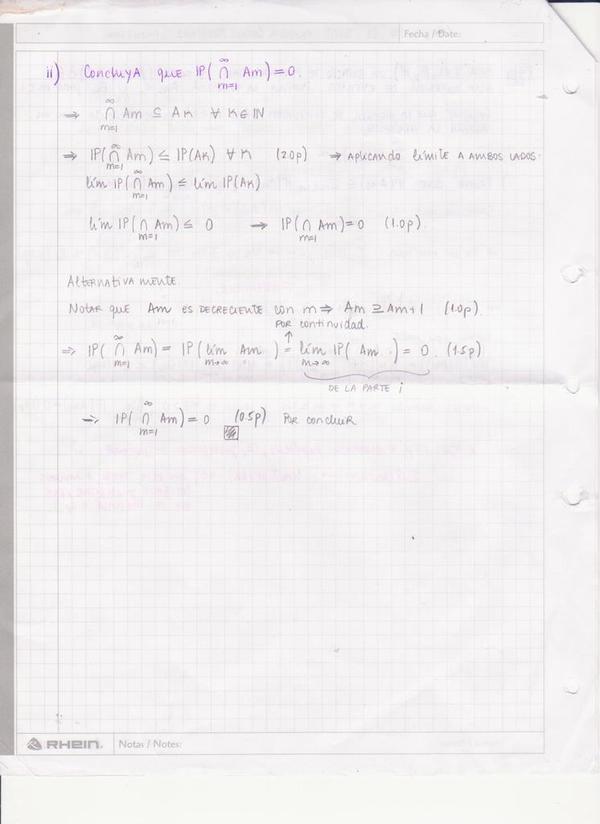 Fecha / Date:
ii) Concluya que IP(∩_{m=1}^{∞} Am) = 0.
⇒ ∩_{m=1}^{∞} Am ⊆ Ak ∀ k ∈ IN
⇒ IP(∩_{m=1}^{∞} Am) ≤ IP(Ak) ∀ k (2.0p) → Aplicando límite a ambos lados.
lím IP(∩_{m=1}^{∞} Am) ≤ lím IP(Ak)
lím IP(∩_{m=1}^{∞} Am) ≤ 0 → IP(∩_{m=1} Am) = 0 (1.0p)
Alternativa mente.
Notar que Am es decreciente con m ⇒ Am ⊇ Am+1 (1.0p)
por continuidad.
↑
⇒ IP(∩_{m=1}^{∞} Am) = IP(lím_{m→∞} Am) = lím_{m→∞} IP(Am) = 0. (1.5p)
de la parte i
⇒ IP(∩_{m=1}^{∞} Am) = 0 (0.5p) Por concluir
RHEIN. Notas / Notes: